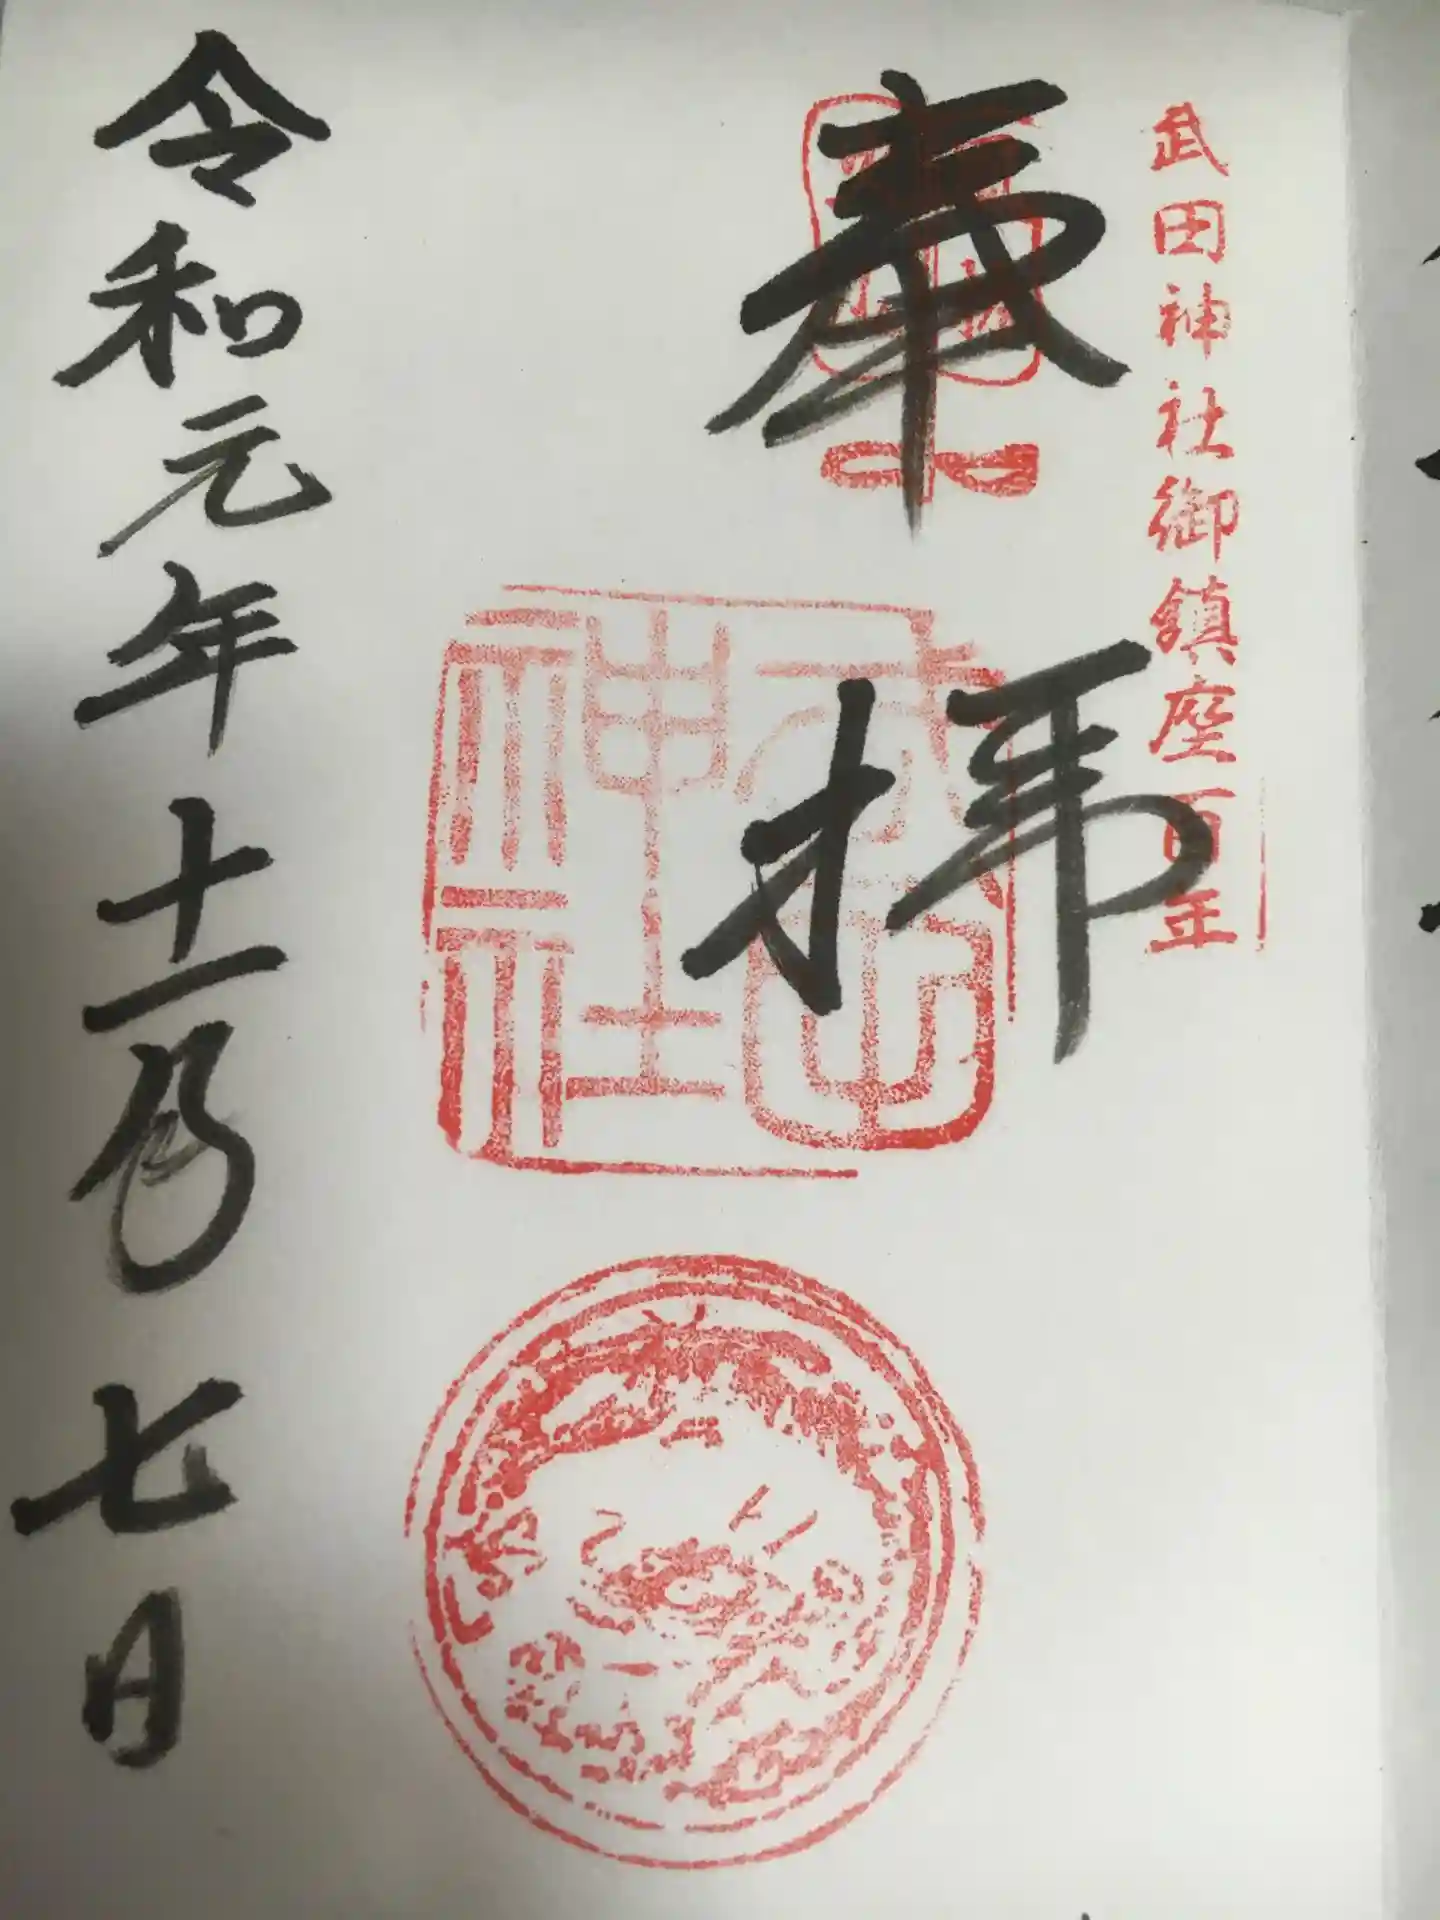 武田神社御鎮座百年
奉拝
武田
神社
令和元年十一月七日